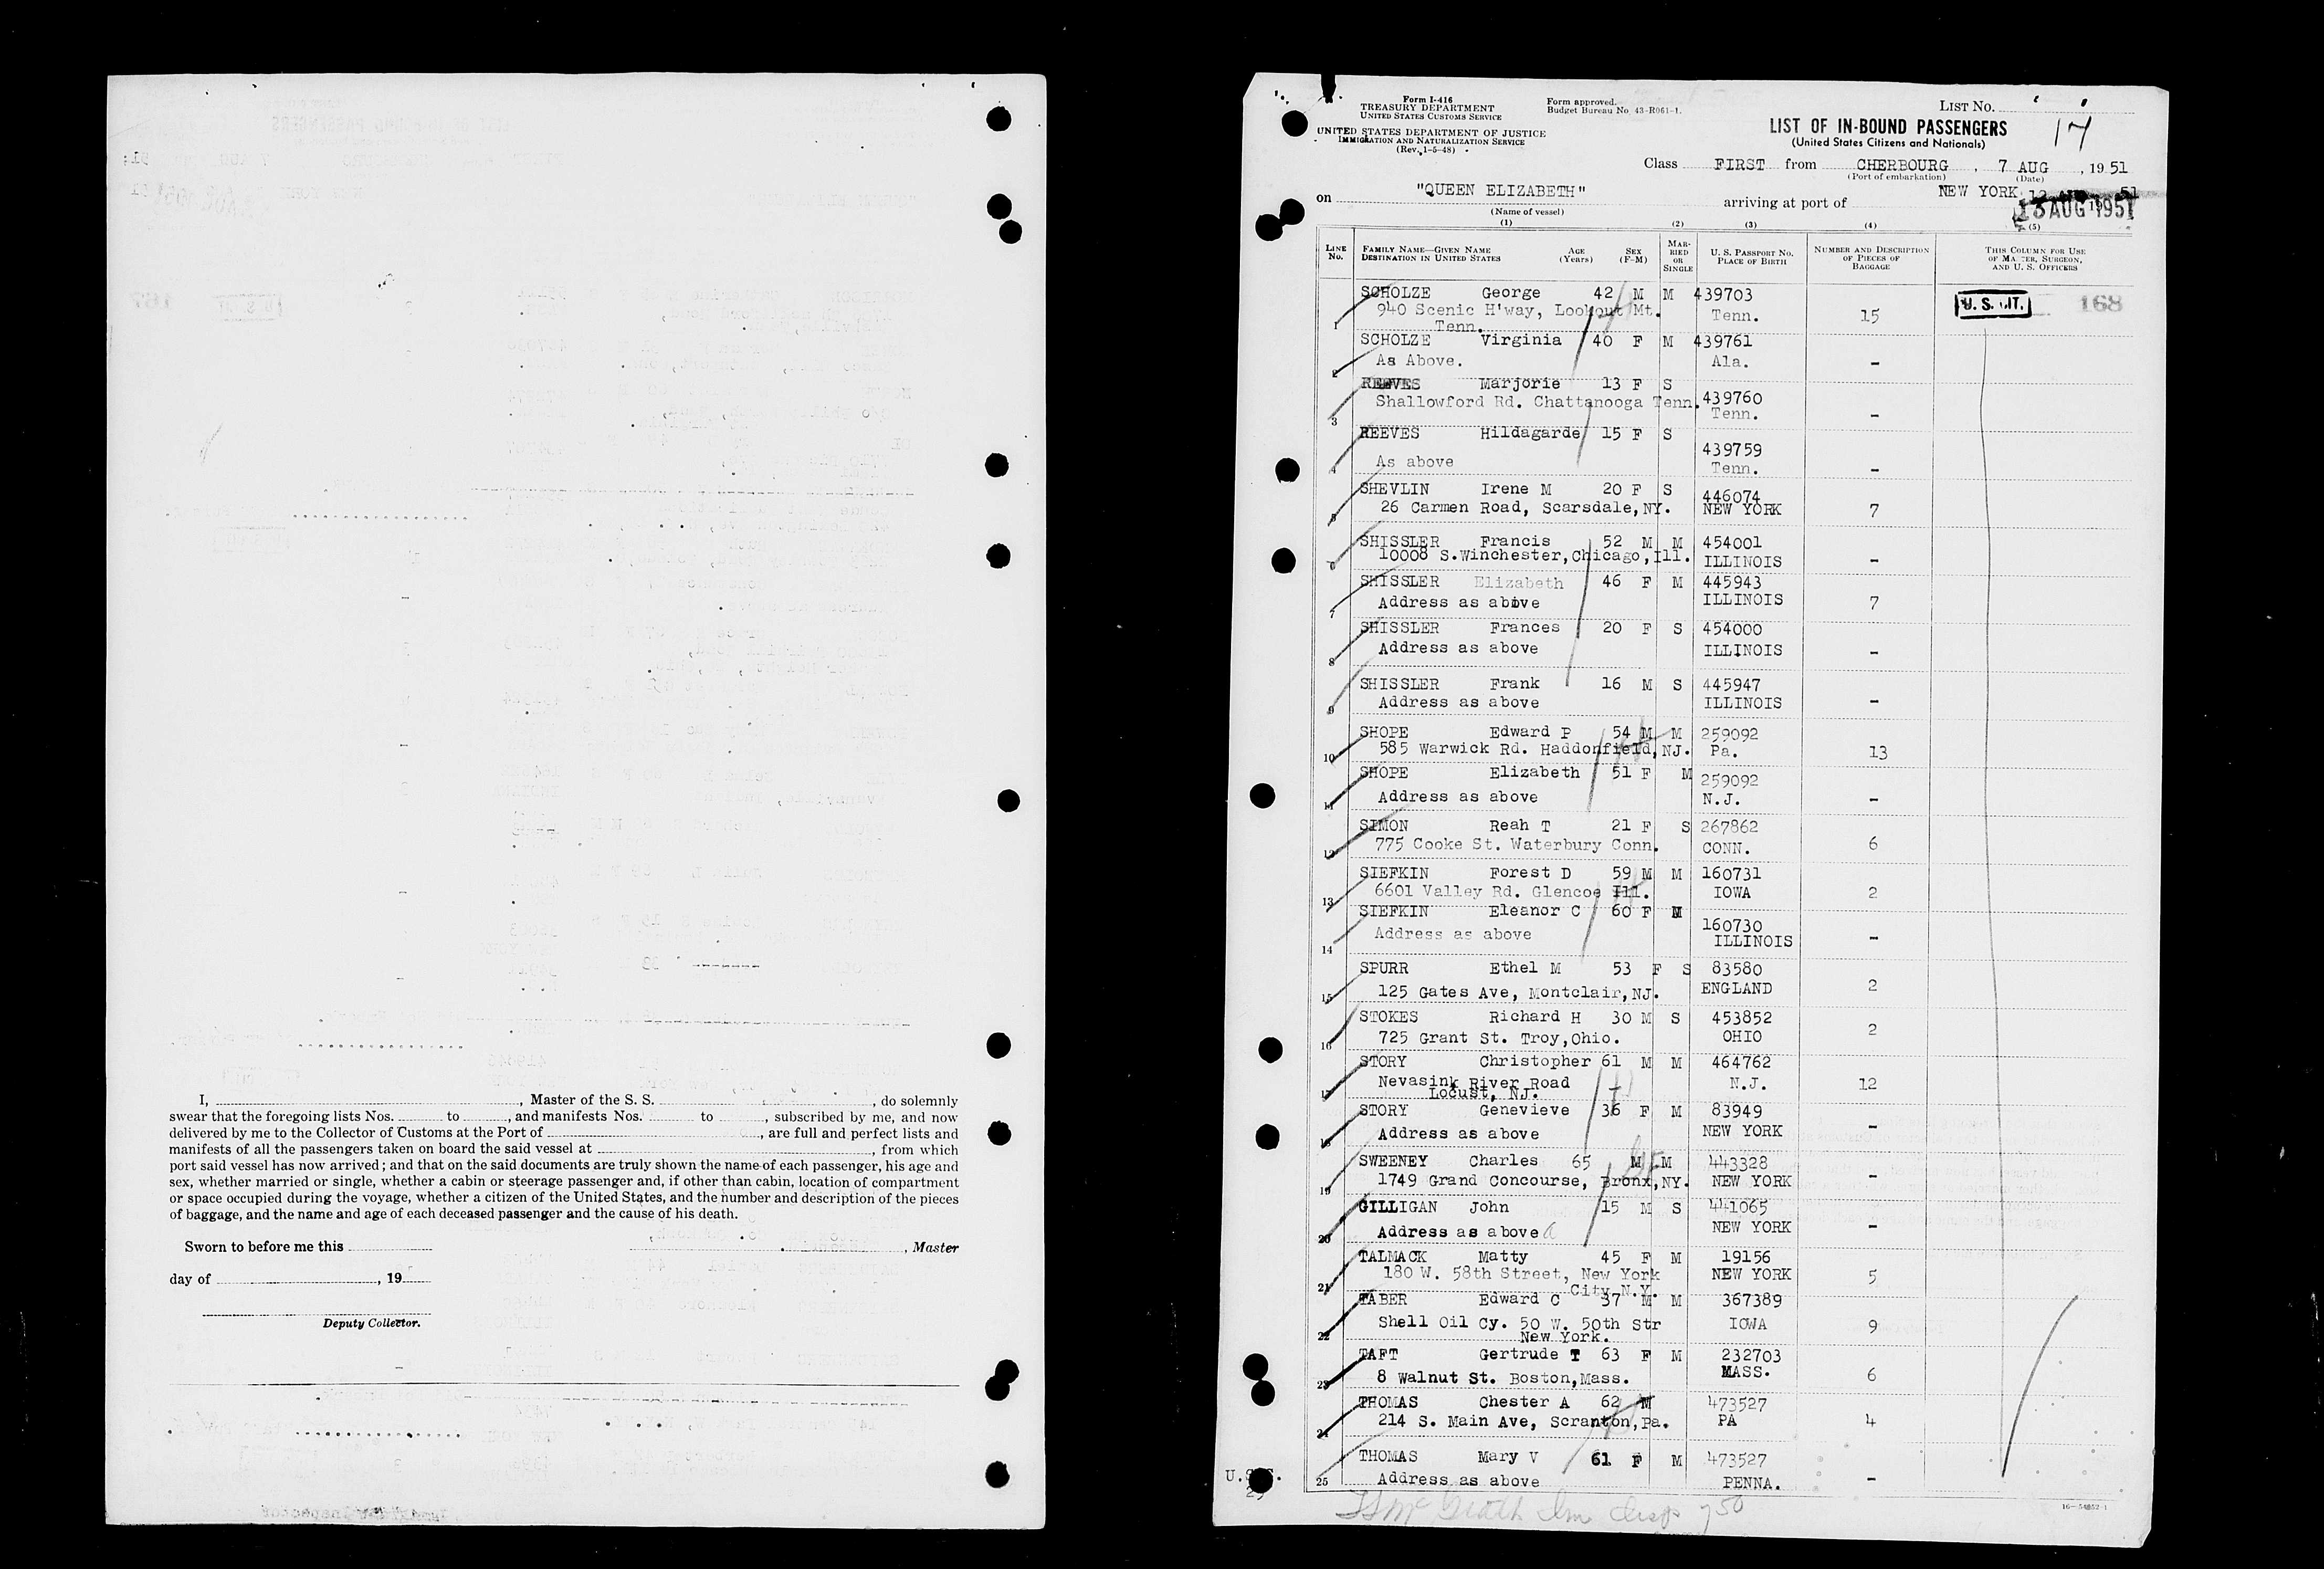 I, , Master of the S. S. , do solemnly
swear that the foregoing lists Nos. to , and manifests Nos. to , subscribed by me, and now
delivered by me to the Collector of Customs at the Port of , are full and perfect lists and
manifests of all the passengers taken on board the said vessel at , from which
port said vessel has now arrived; and that on the said documents are truly shown the name of each passenger, his age and
sex, whether married or single, whether a cabin or steerage passenger and, if other than cabin, location of compartment
or space occupied during the voyage, whether a citizen of the United States, and the number and description of the pieces
of baggage, and the name and age of each deceased passenger and the cause of his death.
Sworn to before me this , Master
day of , 19
Deputy Collector.
Form I-416
TREASURY DEPARTMENT
UNITED STATES CUSTOMS SERVICE
UNITED STATES DEPARTMENT OF JUSTICE
IMMIGRATION AND NATURALIZATION SERVICE
(Rev. 1-5-48)
Form approved.
Budget Bureau No. 43-R061-1.
LIST NO.
17
LIST OF IN-BOUND PASSENGERS
(United States Citizens and Nationals)
Class FIRST from CHERBOURG , 7 AUG , 1951
(Port of embarkation) (Date)
on "QUEEN ELIZABETH" arriving at port of NEW YORK
(Name of vessel)
13 AUG 1951
(1) (2) (3) (4) (5)
LINE NO. FAMILY NAME—GIVEN NAME DESTINATION IN UNITED STATES AGE (Years) SEX (F-M) MARRIED OR SINGLE U. S. PASSPORT NO. PLACE OF BIRTH NUMBER AND DESCRIPTION OF PIECES OF BAGGAGE THIS COLUMN FOR USE OF MASTER, SURGEON, AND U. S. OFFICERS
SCHOLZE George 42 M M 439703 U. S. CIT. 168
940 Scenic H'way, Lookout Mt. Tenn. 15
1 Tenn.
SCHOLZE Virginia 40 F M 439761
2 As Above. Ala. -
REEVES Marjorie 13 F S
3 Shallowford Rd. Chattanooga Tenn. 439760 Tenn. -
REEVES Hildagarde 15 F S 439759
4 As above Tenn. -
SHEVLIN Irene M 20 F S 446074
5 26 Carmen Road, Scarsdale, NY. NEW YORK 7
SHISSLER Francis 52 M M 454001
6 10008 S.Winchester, Chicago, Ill. ILLINOIS -
SHISSLER Elizabeth 46 F M 445943
7 Address as above ILLINOIS 7
SHISSLER Frances 20 F S 454000
8 Address as above ILLINOIS -
SHISSLER Frank 16 M S 445947
9 Address as above ILLINOIS -
SHOPE Edward P 54 M M 259092
10 585 Warwick Rd. Haddonfield, NJ. Pa. 13
SHOPE Elizabeth 51 F M 259092
11 Address as above N.J. -
SIMON Reah T 21 F S 267862
12 775 Cooke St. Waterbury Conn. CONN. 6
SIEFKIN Forest D 59 M M 160731
13 6601 Valley Rd. Glencoe Ill. IOWA 2
SIEFKIN Eleanor C 60 F M 160730
14 Address as above ILLINOIS -
SPURR Ethel M 53 F S 83580
15 125 Gates Ave, Montclair, NJ. ENGLAND 2
STOKES Richard H 30 M S 453852
16 725 Grant St. Troy, Ohio. OHIO 2
STORY Christopher 61 M M 464762
Nevasink River Road N.J. 12
17 Locust, NJ.
STORY Genevieve 36 F M 83949
18 Address as above NEW YORK -
SWEENEY Charles 65 M M 443328
19 1749 Grand Concourse, Bronx, NY. NEW YORK -
GILLIGAN John 15 M S 441065
20 Address as above NEW YORK -
TALMACK Matty 45 F M 19156
180 W. 58th Street, New York NEW YORK 5
21 City N.Y.
TABER Edward C 37 M M 367389
Shell Oil Cy. 50 W. 50th Str IOWA 9
22 New York.
TAFT Gertrude T 63 F M 232703
23 8 Walnut St. Boston, Mass. MASS. 6
THOMAS Chester A 62 M 473527
24 214 S. Main Ave, Scranton, Pa. PA 4
THOMAS Mary V 61 F M 473527
25 Address as above PENNA. -
16-54852-1